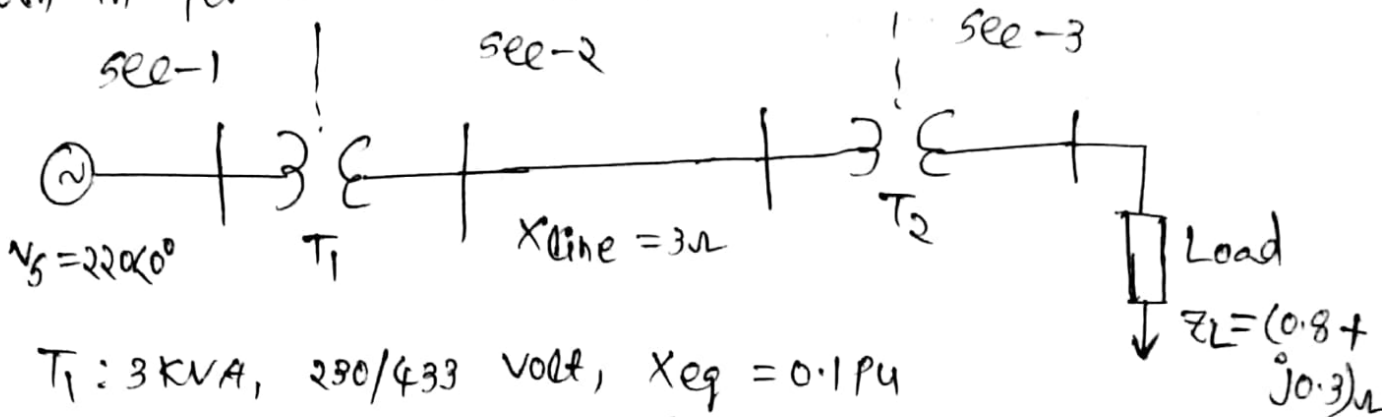 sec-1
sec-2
sec-3
Vs = 220<0°
T1
Xline = 3Ω
T2
Load
ZL = (0.8 +
j0.3)Ω
T1 : 3 KVA, 230/433 volt, Xeq = 0.1 PU